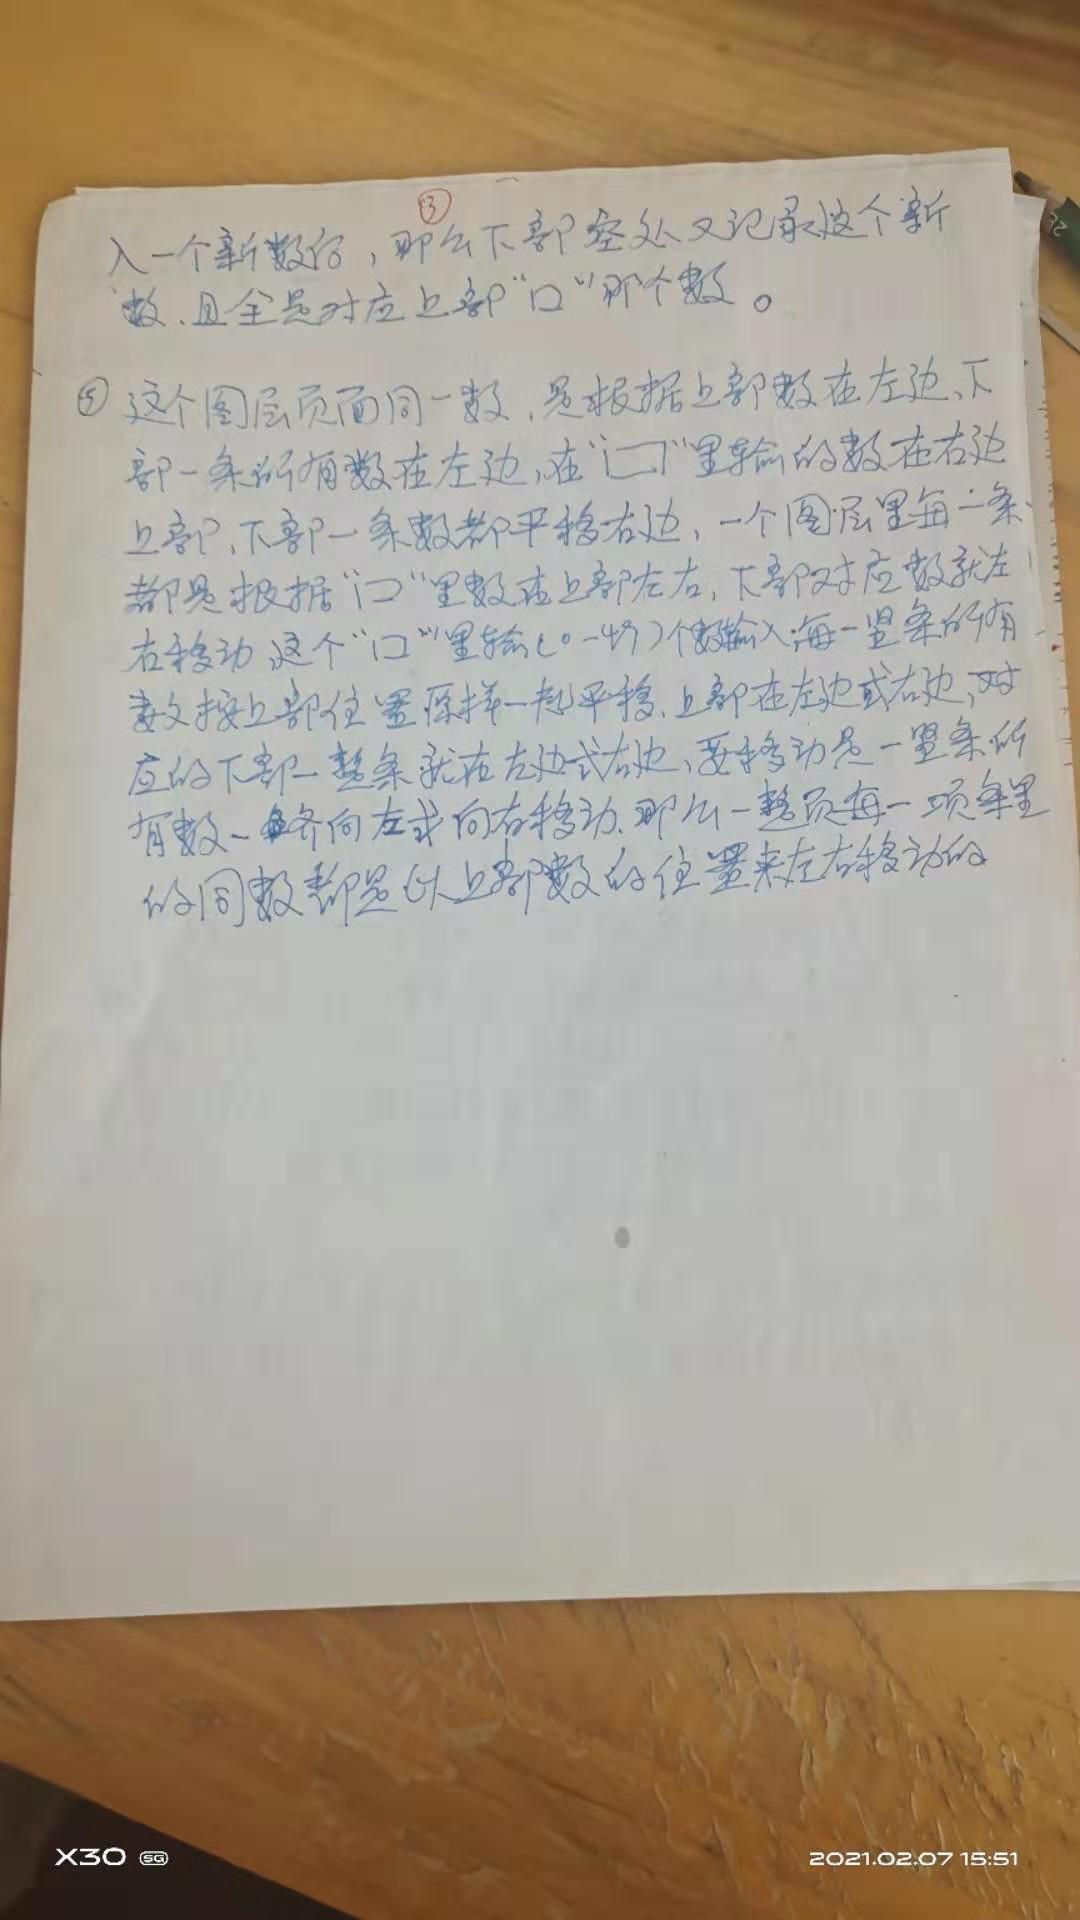 ③
入一个新数的，那么下部空处又记录这个新
数、且全是对应上部“口”那个数。
⑤ 这个图层页面同一数，是根据上部数在左边、下
部一条所有数在左边，在“口”里输的数在右边
上部，下部一条数都平移右边，一个图层里每一条
都是根据“口”里数在上部左右，下部对应数就左
右移动，这个“口”里输(0-49)个数输入，每一竖条所有
数按上部位置原样一起平移，上部在左边或右边，对
应的下部一整条就在左边或右边，要移动是一竖条所
有数一齐向左或向右移动，那么一整页每一项条里
的同数都是以上部数的位置来左右移动的
X30 5G
2021.02.07 15:51